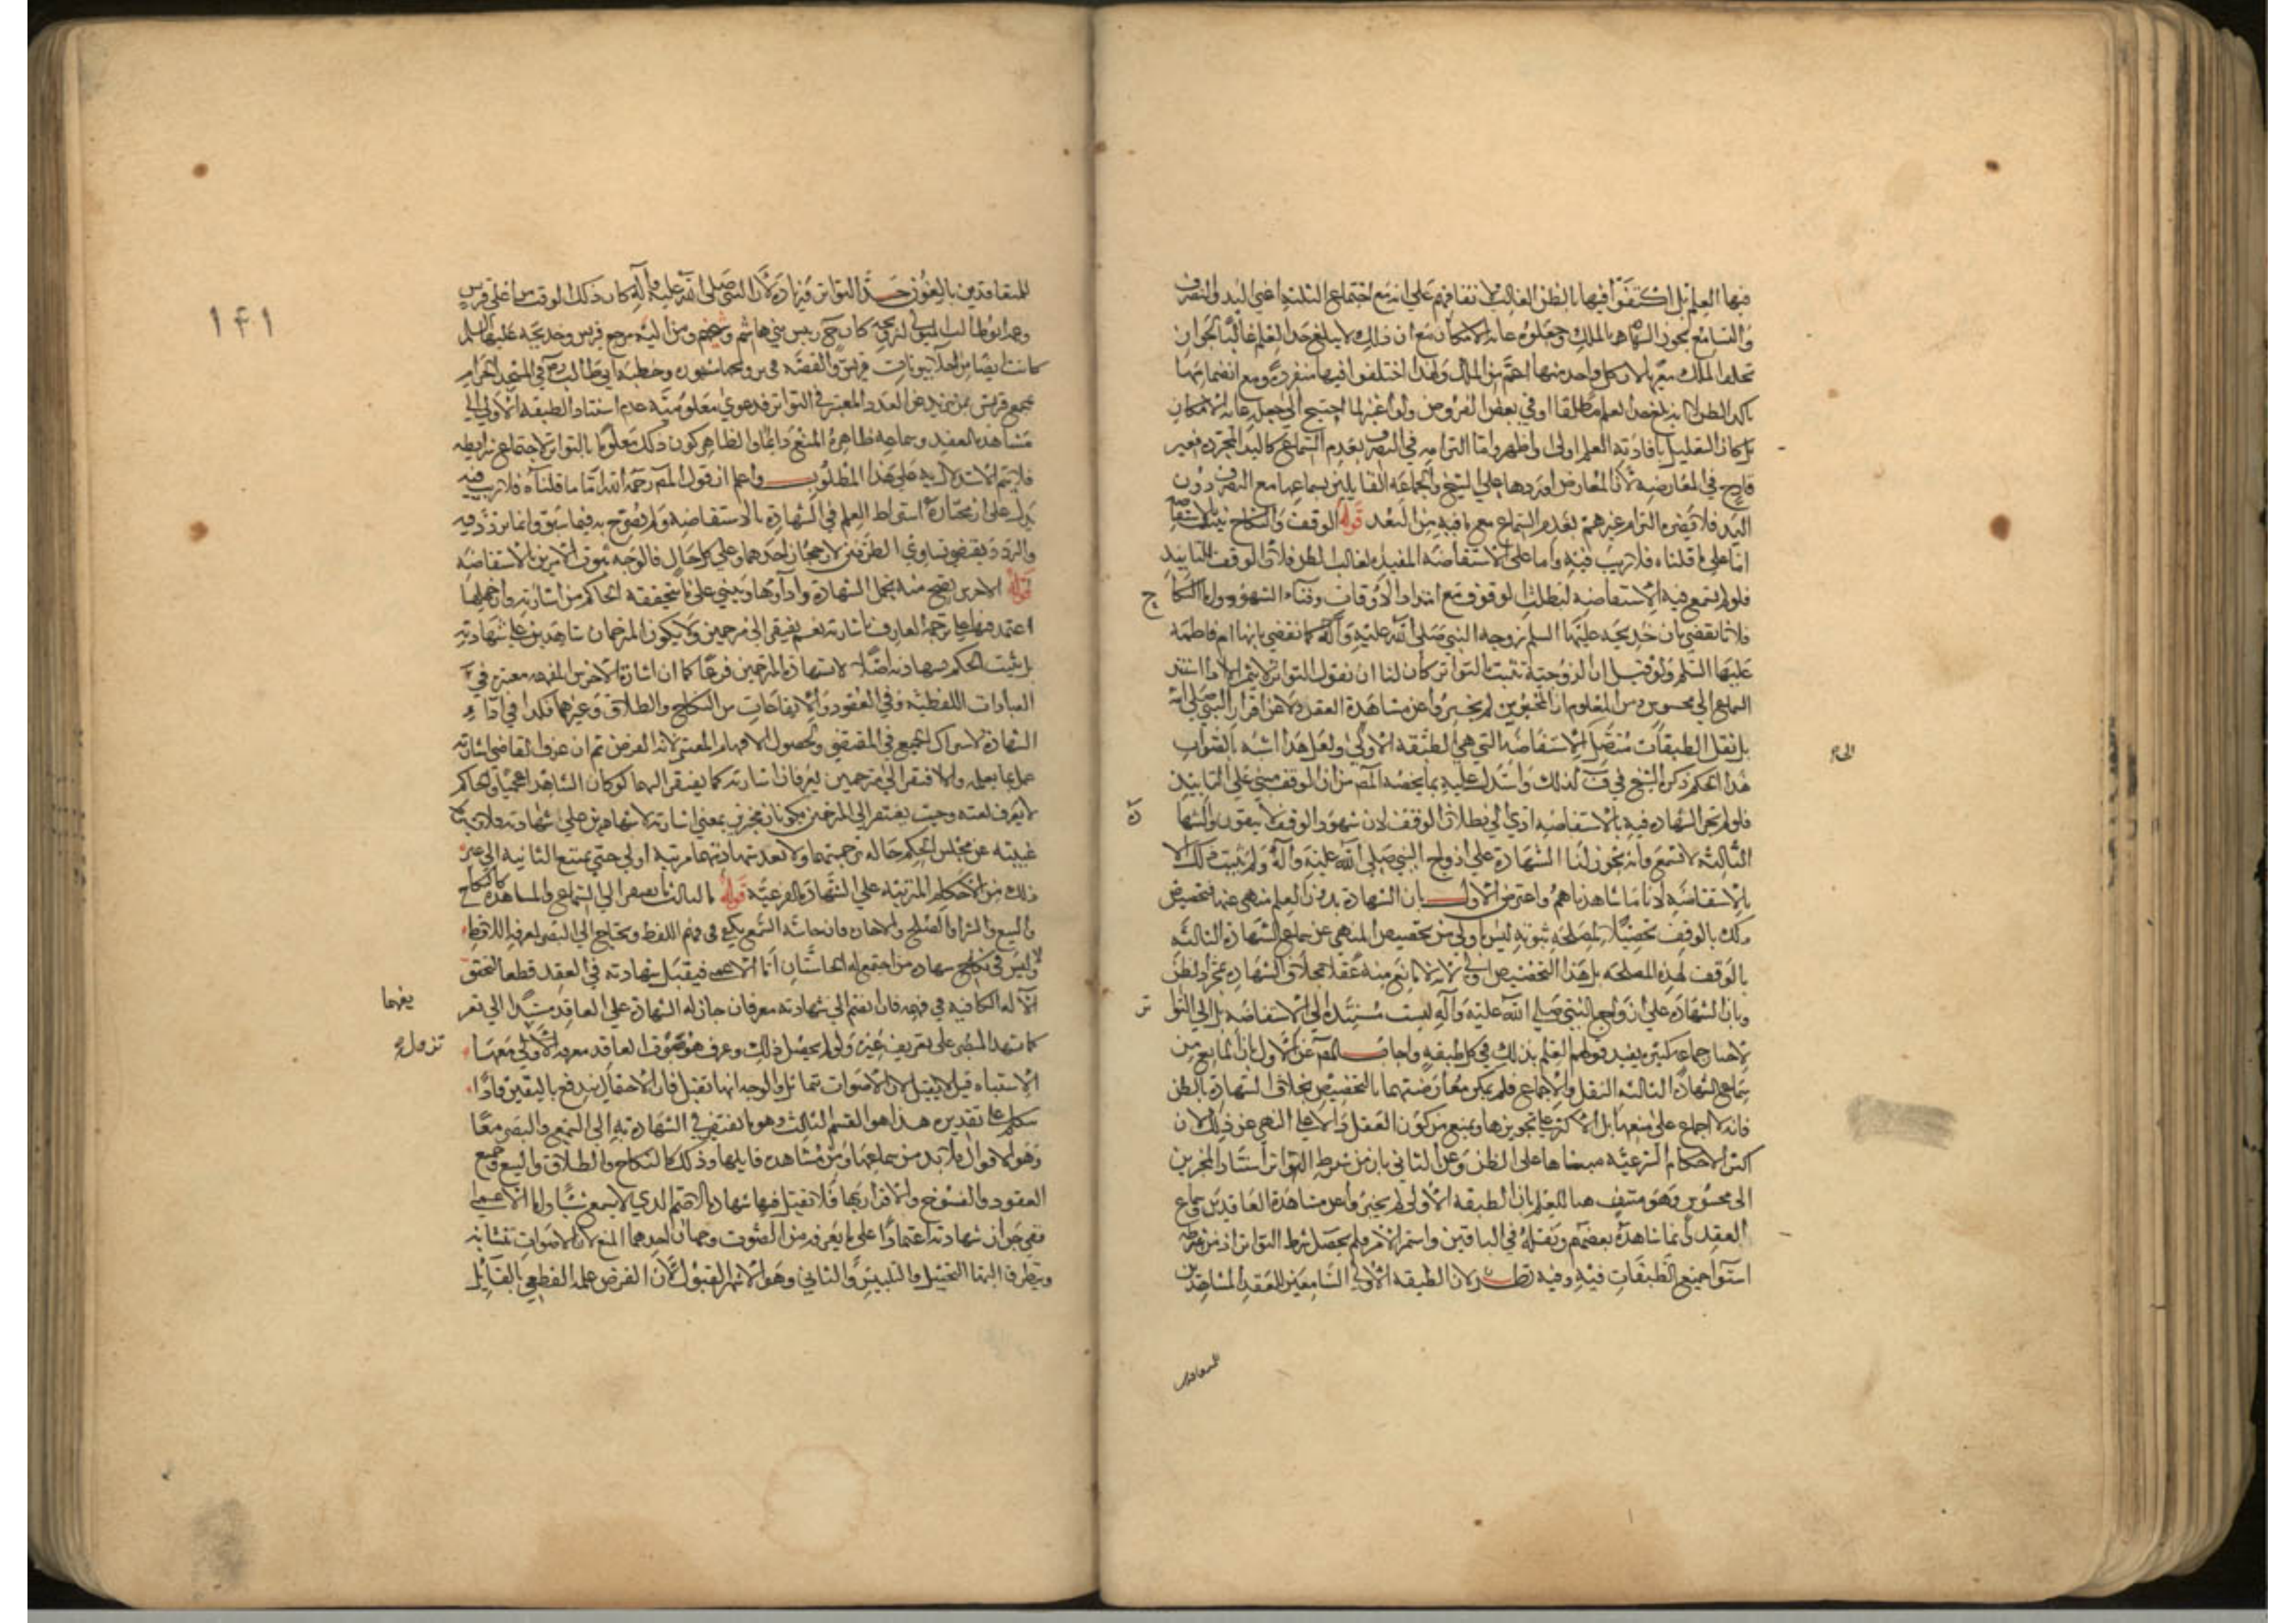 فيها العلم بل اكتفوا فيها بالظن الغالب لا تفاقهم علي انه مع اجتماع الثلثة اعني اليد والتصرف
والتسامع يجوز الشهادة بالملك وجعلوه غاية الامكان مع ان ذلك لا يبلغ حد العلم غالبا لجواز
تخلف الملك معها لان كل واحد منها اعم من الملك ولهذا اختلفوا فيها منفردة ومع انضمامها
يتاكد الظن لا انه يبلغ حد العلم مطلقا او في بعض الفروض ولو اغيرلما احتيج الي جعله غاية الامكان
بل كان التعليل بافادته العلم اولي واظهر واما التزامه في التصرف بعدم التسامع كاليد المجردة فغير
قادح في المعارضة لان المعارض اوردها علي الشيخ والجماعة القايلين بسماعها مع التصرف دون
اليد فلا يضره التزام غيرهم بعدم السماع معه مع ما فيه من البعد قوله الوقف والنكاح يثبت بالاستفاضة
اما علي ما قلناه فلا ريب فيه واما علي الاستفاضة المفيدة لغالب الظن فلان الوقف للتابيد
فلو لم يسمع فيه الاستفاضة لبطلت الوقوف مع امتداد الاوقات وفناء الشهود واما النكا
ح
فلانا نقضي بان خديجة عليها السلم زوجة النبي صلى الله عليه وآله كما نقضي بانها ام فاطمة
عليها السلم ولو قيل ان الزوجية تثبت بالتواتر كان لنا ان نقول التواتر لا يثمر الا اذا استند
السماع الي محسوس ومن المعلوم ان المخبرين لم يخبروا عن مشاهدة العقد ولا عن اقرار النبي صلى الله
بل نقل الطبقات متصل الي الاستفاضة التي هي الطبقة الاولي ولعل هذا اشبه بالصواب
الي
هذا الحكم ذكره الشيخ في ف كذلك واستدل عليه بما لخصه المص من ان الوقف مبني علي التابيد
فلو لم تجز الشهادة فيه بالاستفاضة ادي الي بطلان الوقف لان شهود الوقف لا يبقون والشها
دة
الثالثة لا تسمع وانه يجوز لنا الشهادة علي ازواج النبي صلى الله عليه وآله ولم يثبت ذلك الا
بالاستفاضة لانا ما شاهدناهم واعترض الاول بان الشهادة بدون العلم منهي عنها فتخصيص
ذلك بالوقف تحصيلا لمصلحة ثبوته ليس باولي من تخصيص المنهي عن سماع الشهادة الثالثة
بالوقف لهذه المصلحة بل هذا التخصيص اولي لانه لا مانع منه عقلا بخلاف الشهادة بمجرد الظن
وبان الشهادة علي ازواج النبي صلى الله عليه وآله ليست مستندة الي الاستفاضة بل الي التوا
تر
لاخبار جماعة كثيرة يفيد قولهم العلم بذلك في كل طبقة واجاب المص عن الاول بان المانع من
سماع الشهادة الثالثة النقل والاجماع فلم يمكن معارضتهما بالتخصيص بخلاف الشهادة بالظن
فانه لا اجماع علي منعها بل الاكثر علي تجويزها ويمنع من كون العقل دالا علي النهي عن ذلك لان
اكثر الاحكام الشرعية مبناها علي الظن وعن الثاني بان من شرط التواتر استناد المخبرين
الى محسوس وهو منتف هنا للعلم بان الطبقة الاولى لم يخبروا عن مشاهدة العاقدين وسماع
العقد وانما شاهده بعضهم ونقله في الباقين واستمر الامر فلم يحصل شرط التواتر اذ من شرطه
استوا جميع الطبقات فيه وفيه نظر لان الطبقة الاولي السامعين للعقد المشاهدين
للمتعاقدين
للمتعاقدين بالغون حد التواتر وزيادة لان النبي صلى الله عليه وآله كان ذلك الوقت من اعلي قريش
وعمه ابو طالب المتولي لتزويجه كان ح رييس بني هاشم وشيخهم ومن اليه مرجع قريش وخديجة عليها السلم
كانت ايضا من اجلا بيوتات قريش والقصة في تزويجها مشهورة وخطبة ابي طالب في المسجد الحرام
بمجمع قريش ممن يزيد عن العدد المعتبر في التواتر فدعوي معلومية عدم استناد الطبقة الاولي الي
مشاهدة العقد وسماعه ظاهرة المنع دائما والظاهر كون ذلك معلوما بالتواتر لاجتماع شرايطه
فلا يتم الاستدلال به علي هذا المطلوب واعلم ان قول المص رحمه الله اما ما قلناه فلا ريب فيه
يدل على ان مختاره اشتراط العلم في الشهادة بالاستفاضة ولم يصرح به فيما سبق وانما تردد فيه
والتردد يقتضي تساوي الطرفين لا رجحان احدهما وعلي كل حال فالوجه ثبوت الامرين بالاستفاضة
قوله الاخرس يصح منه تحمل الشهادة واداؤها ويبني علي ما يتحققه الحاكم من اشارته وان جهلها
اعتمد فيها علي ترجمة العارف باشارته نعم يفتقر الي مترجمين ولا يكون المترجمان شاهدين علي شهادته
بل يثبت الحكم بشهادته اصلا لا بشهادة المترجمين فرعا كما ان اشارة الاخرس المفهمة معتبرة في
العبارات اللفظية وفي العقود والايقاعات من النكاح والطلاق وغيرهما فكذا في اقامة
الشهادة لاشتراك الجميع في المقتضي ولحصول الافهام المعتبر لانه الغرض ثم ان عرف القاضي اشارته
عمل بما يعلمه والا افتقر الي مترجمين يعرفان اشارته كما يفتقر اليهما لو كان الشاهد اعجميا والحاكم
لا يعرف لغته وحيث يفتقر الي المترجمين يكونان مخبرين بمعني اشارته لا شاهدين علي شهادته فلا يشترط
غيبته عن مجلس الحكم حالة ترجمتهما ولا تعد شهادتهما مرتبة اولي حتي تمتنع الثانية الي غير
ذلك من الاحكام المترتبة علي الشهادة الفرعية قوله الثالث ما يفتقر الي السماع والمشاهدة كالنكاح
والبيع والشرا والصلح والاجارة فان حاسة السمع يكفي في فهم اللفظ ويحتاج الي البصر لمعرفة اللافظ
ولا لبس في شهادة من اجتمع له الحاستان اما الاعمى فيقبل شهادته في العقد قطعا لتحقق
الآلة الكافية في فهمه فان انضم الي شهادته معرفان جاز له الشهادة علي العاقد مستندا الي تعر
يفهما
كما يشهد المبصر على تعريف غيره ولو لم يحصل ذلك وعرف هو صوت العاقد معرفة يزول معها
تزول
الاشتباه قيل لا يقبل لان الاصوات تتماثل والوجه انها تقبل فان الاحتمال يندفع باليقين فانا
نتكلم علي تقديره هذا هو القسم الثالث وهو ما يفتقر في الشهادة به الى السمع والبصر معا
وهو الاقوال فلا بد من سماعها ومن مشاهدة قايلها وذلك كالنكاح والطلاق والبيع وجميع
العقود والفسوخ والاقرار بها فلا تقبل فيها شهادة الاصم الذي لا يسمع شيا واما الاعمى
ففي جواز شهادته اعتمادا علي ما يعرفه من الصوت وجهان احدهما المنع لان الاصوات تتشابه
ويتطرق اليها التخييل والتلبيس والثاني وهو الاشهر القبول لان الفرض علمه القطعي بالقايل
١٤١